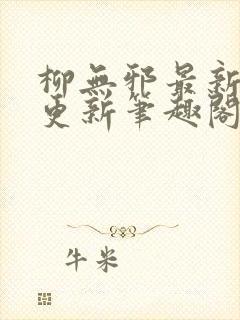 柳無邪最新
更新筆趣閣
牛米